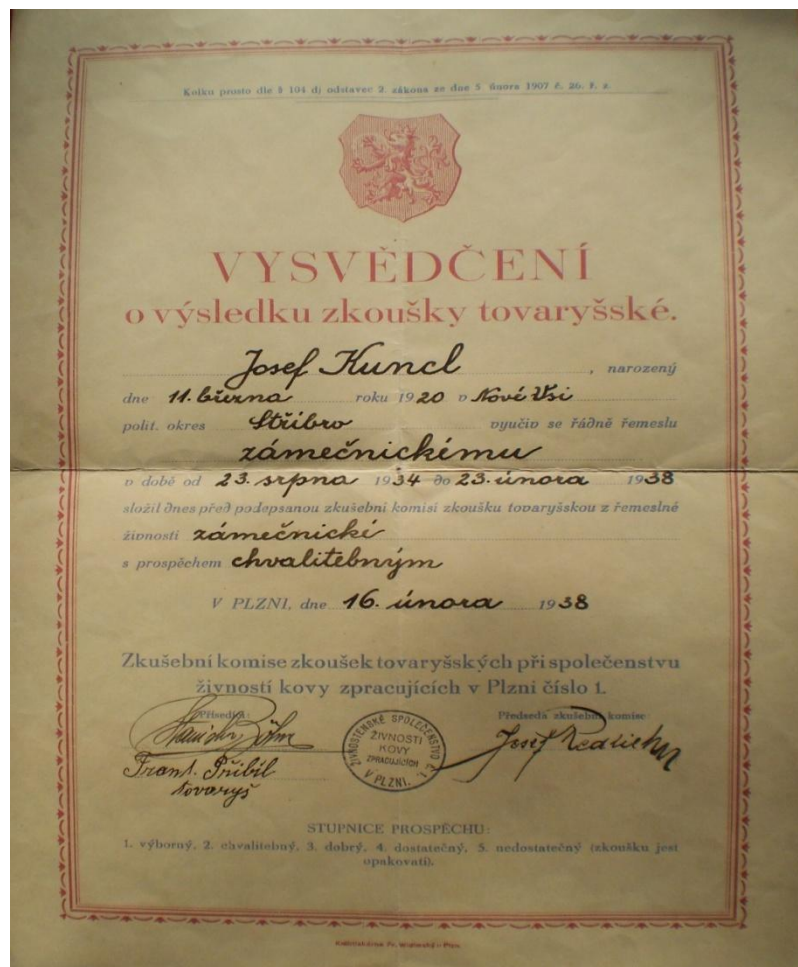 Kolku prosto dle § 104 d) odstavec 2. zákona ze dne 5. února 1907 č. 26. ř. z.
VYSVĚDČENÍ
o výsledku zkoušky tovaryšské.
Josef Kuncl, narozený
dne 11. března roku 1920 v Nové Vsi
polit. okres Stříbro vyučiv se řádně řemeslu
zámečnickému
v době od 23. srpna 1934 do 23. února 1938
složil dnes před podepsanou zkušební komisí zkoušku tovaryšskou z řemeslné
živnosti zámečnické
s prospěchem chvalitebným
V PLZNI, dne 16. února 1938
Zkušební komise zkoušek tovaryšských při společenstvu
živností kovy zpracujících v Plzni číslo 1.
Přísedící: Předseda zkušební komise:
Böhm Josef
Frant. Přibil
tovaryš
ŽIVNOSTENSKÉ SPOLEČENSTVO Č. 1.
ŽIVNOSTI
KOVY
ZPRACUJÍCÍCH
V PLZNI.
STUPNICE PROSPĚCHU:
1. výborný, 2. chvalitebný, 3. dobrý, 4. dostatečný, 5. nedostatečný (zkoušku jest
opakovati).